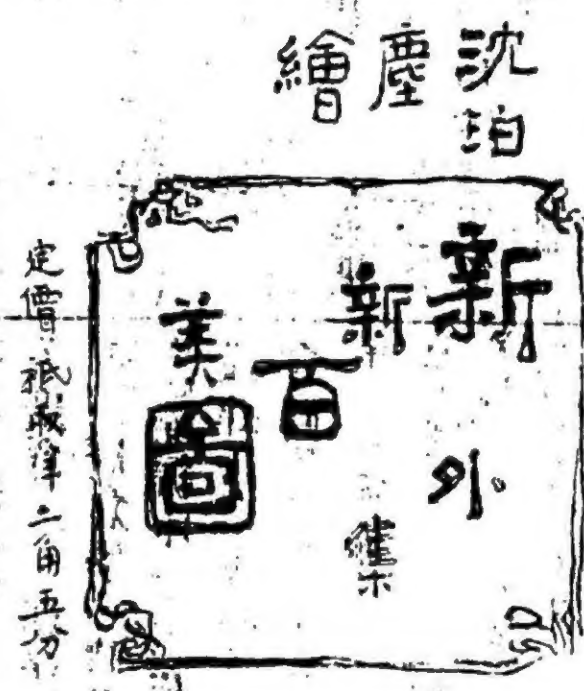 沈泊塵繪
新新百美圖
外集
定價祇洋二角五分